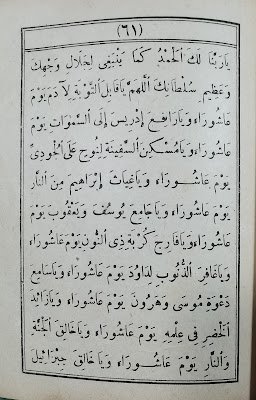 (٦١)
يَا رَبَّنَا لَكَ الْحَمْدُ كَمَا يَنْبَغِى لِجَلَالِ وَجْهِكَ
وَعَظِيمِ سُلْطَانِكَ اَللّٰهُمَّ يَا قَابِلَ التَّوْبَةِ لِاٰدَمَ يَوْمَ
عَاشُورَاءَ وَيَا رَافِعَ اِدْرِيسَ اِلَى السَّمٰوَاتِ يَوْمَ
عَاشُورَاءَ وَيَا مُسَكِّنَ السَّفِينَةِ لِنُوحٍ عَلَى الْجُودِىِّ
يَوْمَ عَاشُورَاءَ وَيَا غِيَاثَ اِبْرَاهِيمَ مِنَ النَّارِ
يَوْمَ عَاشُورَاءَ وَيَا جَامِعَ يُوسُفَ وَيَعْقُوبَ يَوْمَ
عَاشُورَاءَ وَيَا فَارِجَ كُرْبَةِ ذِى النُّونِ يَوْمَ عَاشُورَاءَ
وَيَا غَافِرَ الذُّنُوبِ لِدَاوُدَ يَوْمَ عَاشُورَاءَ وَيَا سَامِعَ
دَعْوَةِ مُوسٰى وَهٰرُونَ يَوْمَ عَاشُورَاءَ وَيَا زَائِدَ
الْخَضِرِ فِى عِلْمِهِ يَوْمَ عَاشُورَاءَ وَيَا خَالِقَ الْجَنَّةِ
وَالنَّارِ يَوْمَ عَاشُورَاءَ وَيَا خَالِقَ جِبْرَائِيلَ